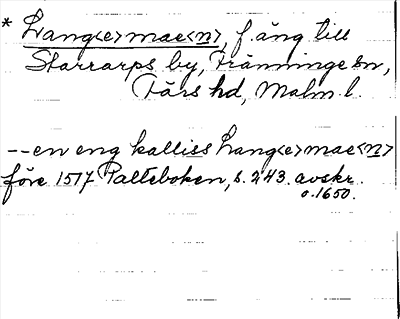 * Lang<e>mae<n>, f. äng till
Starrarps by, Tränninge sn,
Färs hd, Malm. l.
--en eng kalliss Lang<e>mae<n>
före 1517 Palteboken, s. 243. avskr.
o. 1650.